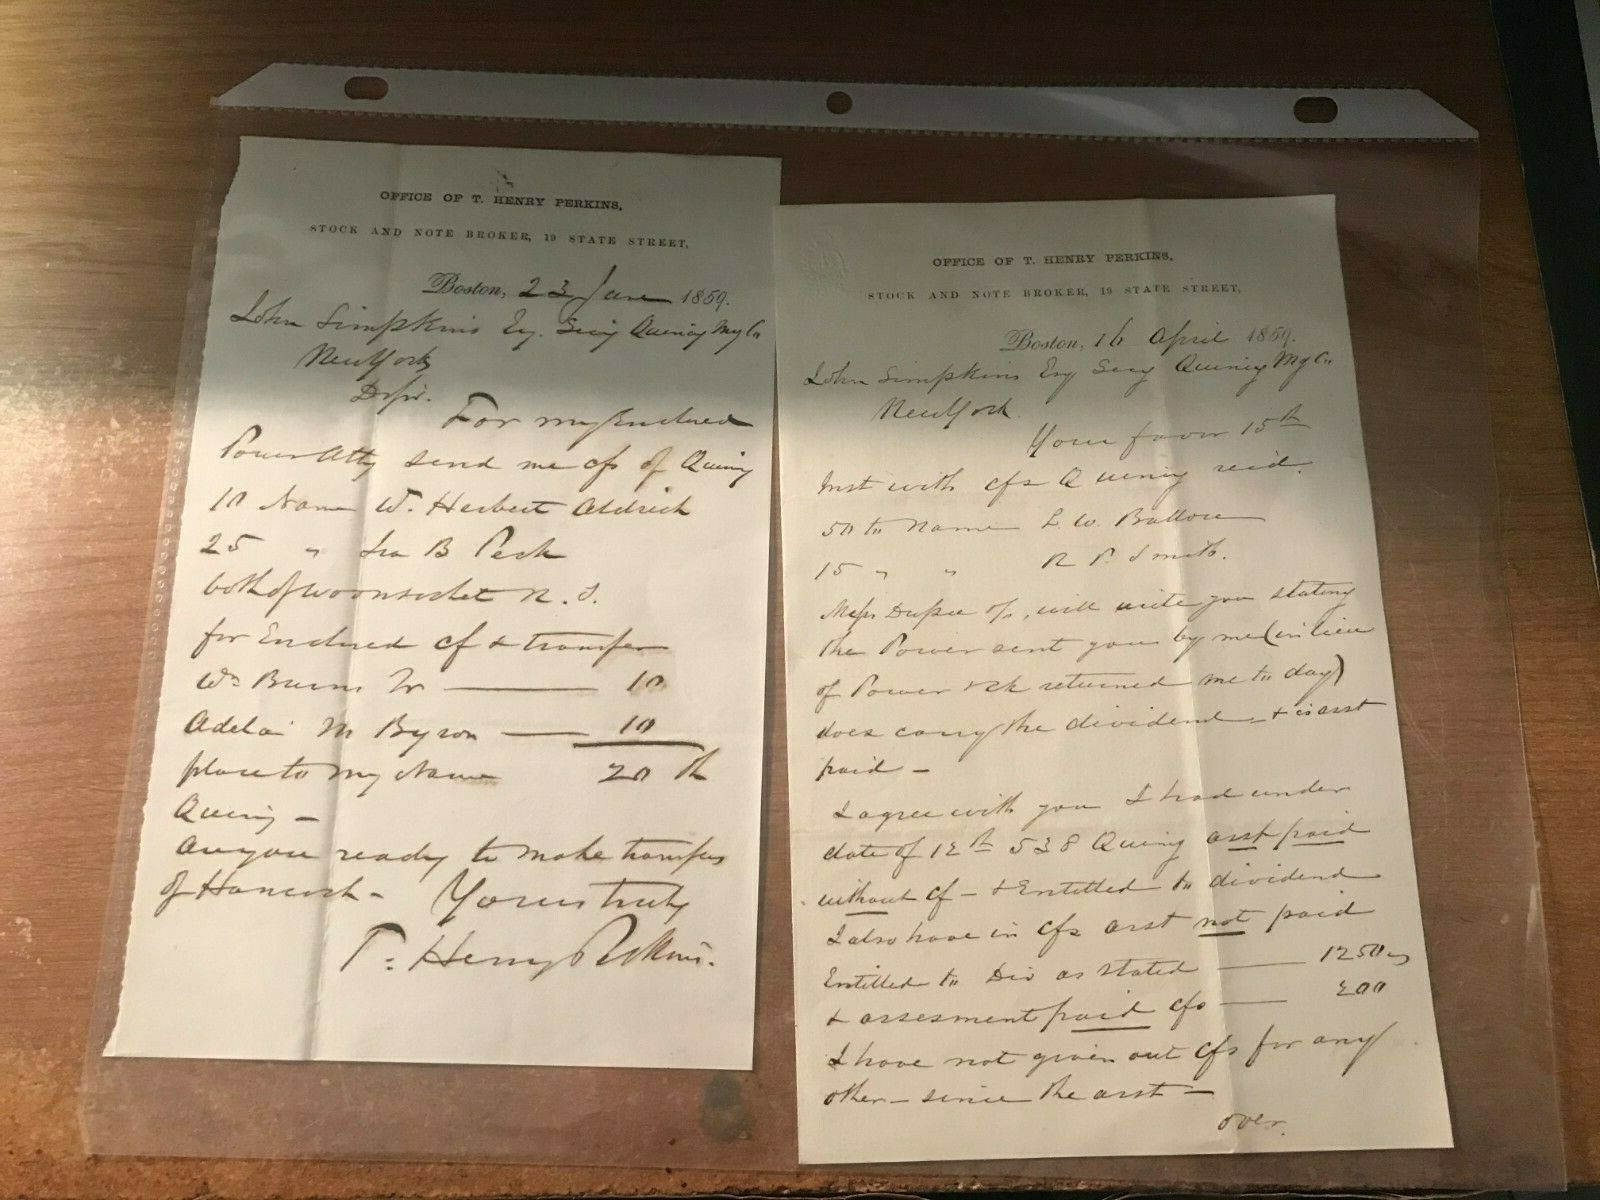 OFFICE OF T. HENRY PERKINS,
STOCK AND NOTE BROKER, 19 STATE STREET,
Boston, 23 June 1859.
John Simpkins Esq. Secy Quincy Mg Co
New York
For my Enclosed
Power Atty send me cfs of Quincy
10 Name W. Herbert Aldrich
25 " Ira B Peck
both of Woonsocket R. I.
for Enclosed cf & transfer
Wm Burns Tr — 10
M Byron — 10
place to my Name 20 sh
Quincy —
Are you ready to make transfers
of Hancock - Yours truly
T. Henry Perkins.
OFFICE OF T. HENRY PERKINS,
STOCK AND NOTE BROKER, 19 STATE STREET,
Boston, 16 April 1859.
John Simpkins Esq Secy Quincy Mg Co
New York.
Your favor 15th
Inst with cfs Quincy recd.
50 to Name L. W. Ballou
15 " " R. P. Smith.
will write you stating
the Power sent you by me (in lieu
of Power & ck returned me to day)
does carry the dividend & is asst
paid —
I agree with you I had under
date of 12th 538 Quincy asst paid
without cf — & Entitled to dividend
I also have in cfs asst not paid
Entitled to Div as stated — 1250
& assesment paid cfs — 200
I have not given out cfs for any
other — since the asst —
over.